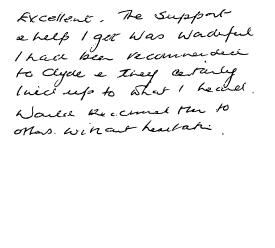 Excellent. The support
& help I got was wonderful
I had been recommended
to Clyde & they certainly
lived up to what I heard.
Would recommend them to
others without hesitation.